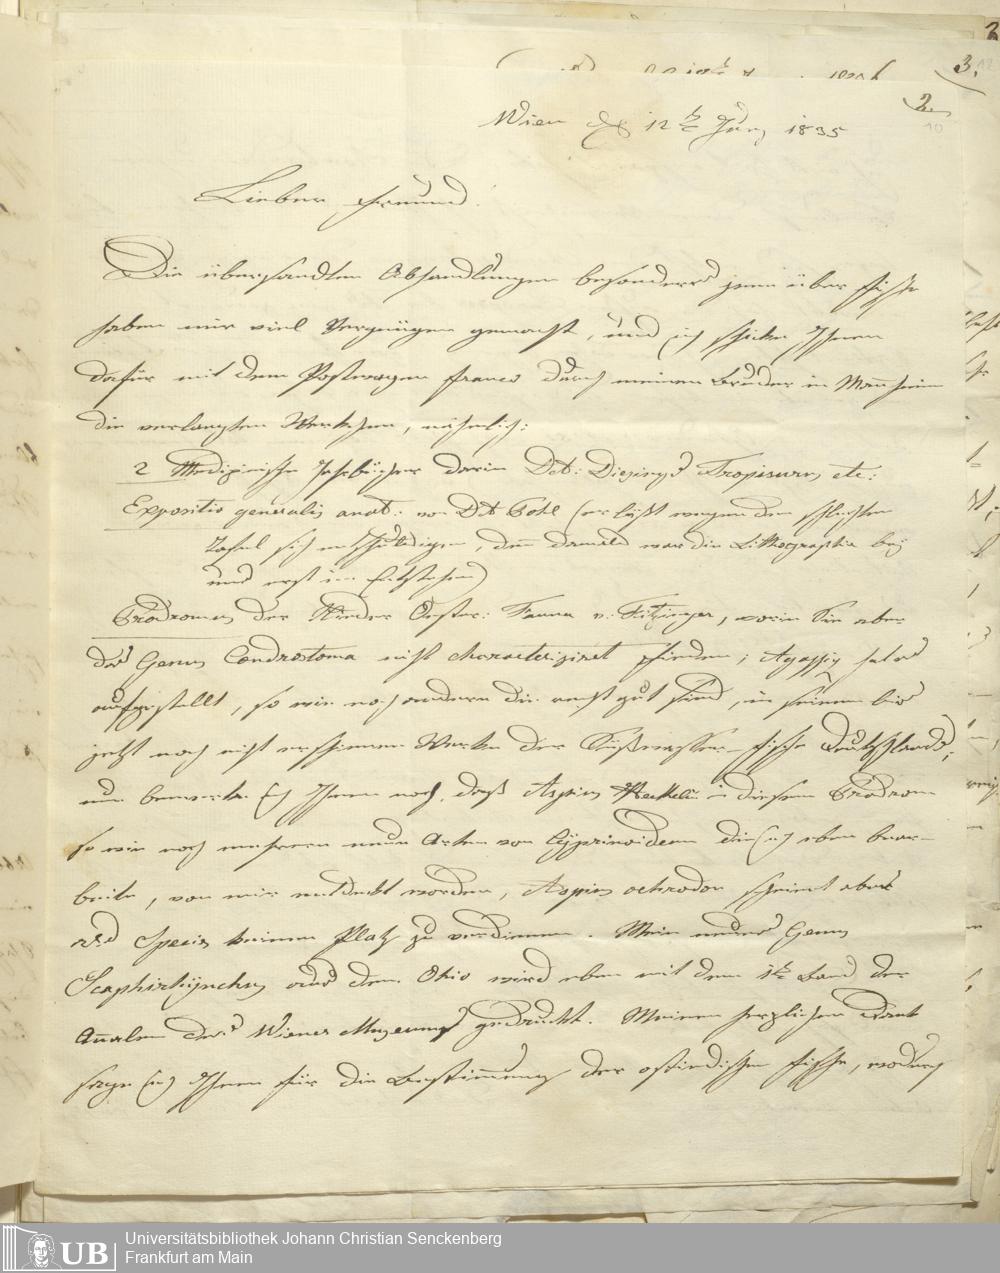 3.
2.
10
Wien d 12t Juny 1835
Lieber Freund!
Die übersandten Abhandlungen besonders jene über Fische
haben mir viel Vergnügen gemacht, und ich schicke Ihnen
dafür mit dem Postwagen franco durch meinen Bruder in Mannheim
die verlangten Werkchen, nähmlich:
2 Medizinische Jahrbücher darin Dct: Diesing's Tropisurus etc:
Expositio generalis anat: von Dct Pohl (er läßt wegen den schlechten
Tafel sich entschuldigen, den damals war die Lithographie bey
uns erst im Entstehen)
Prodromus der Nieder Oester: Fauna v. Fitzinger, worin Sie aber
das Genus Condrostoma nicht characterisirt finden; Agassiz hat es
aufgestellt, so wie noch andere die recht gut sind, in seinem bis
jetzt noch nicht erschienenen Werke der Süßwasser-fische Deutschlands,
nun bemerke ich Ihnen noch, daß Aspius Heckelii in diesem Prodrom
so wie noch mehrere neue Arten von Cyprinoiden die ich eben bear-
beite, von mir entdeckt worden, Aspius ochrodon scheint aber
als Species keinen Platz zu verdienen. Mein neues Genus
Scaphirhynchus aus dem Ohio wird eben mit dem 1t Band der
Analen des Wiener Museums gedruckt. Meinen herzlichen Dank
sage ich Ihnen für die Bestimung der ostindischen Fische, wodurch
UB
Universitätsbibliothek Johann Christian Senckenberg
Frankfurt am Main